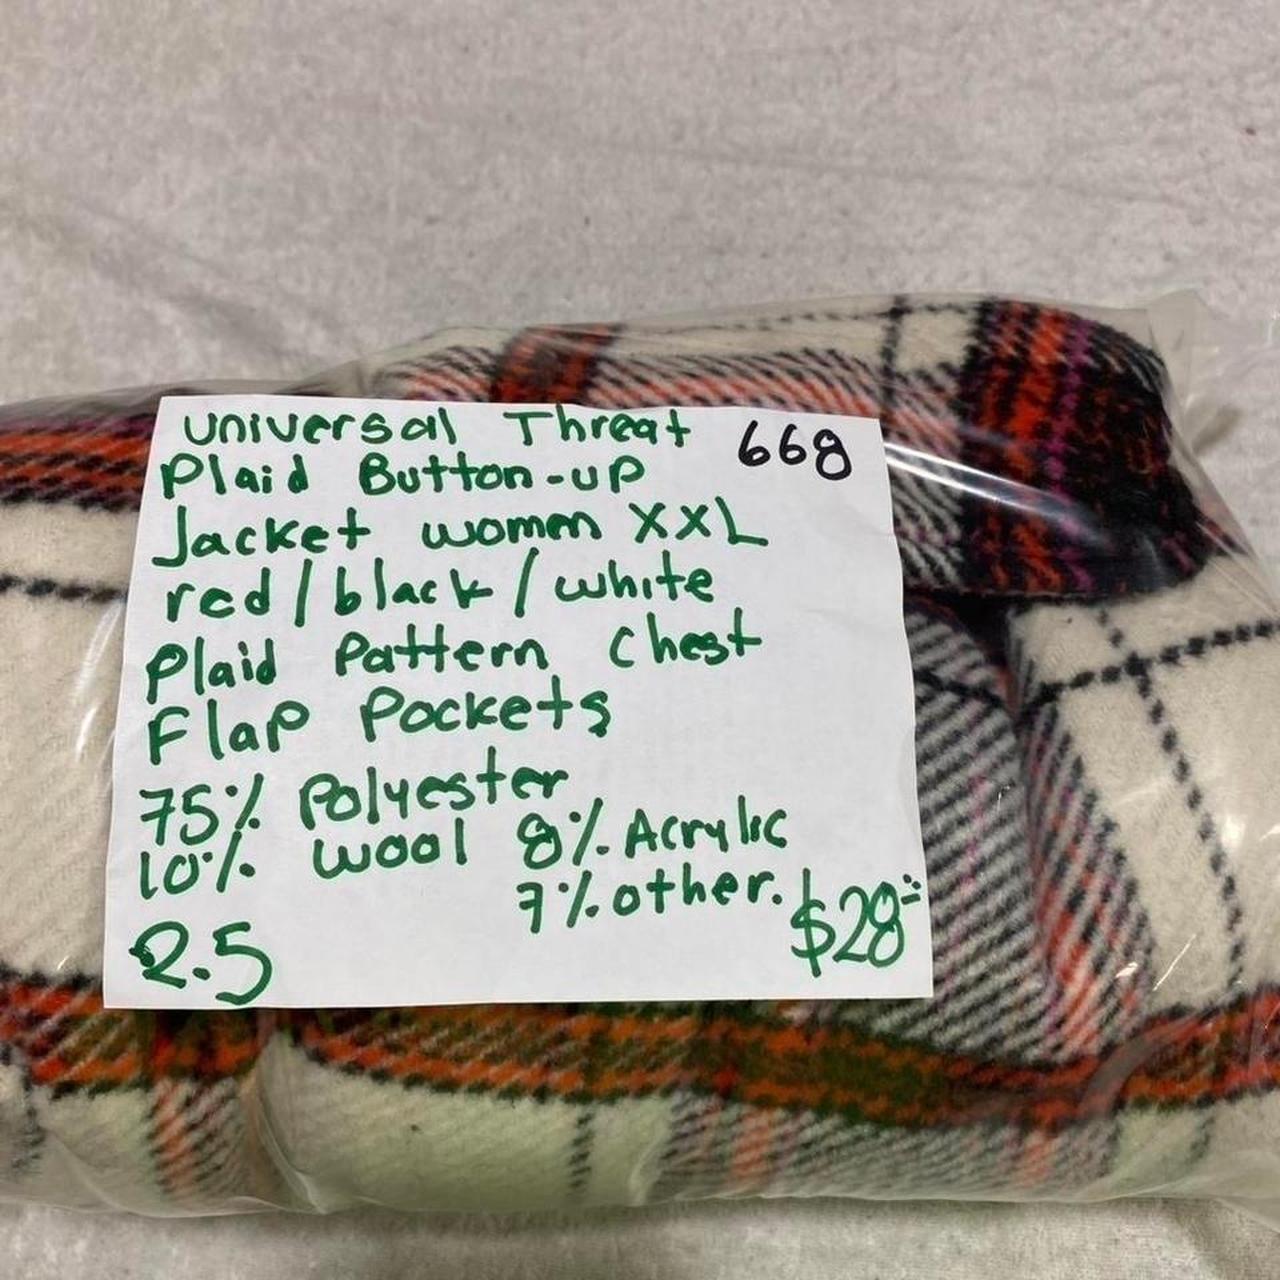 Universal Threat 668
Plaid Button-up
Jacket women XXL
red/black/white
Plaid Pattern Chest
Flap Pockets
75% Polyester
10% wool 8% Acrylic
7% other.
2.5 $28=